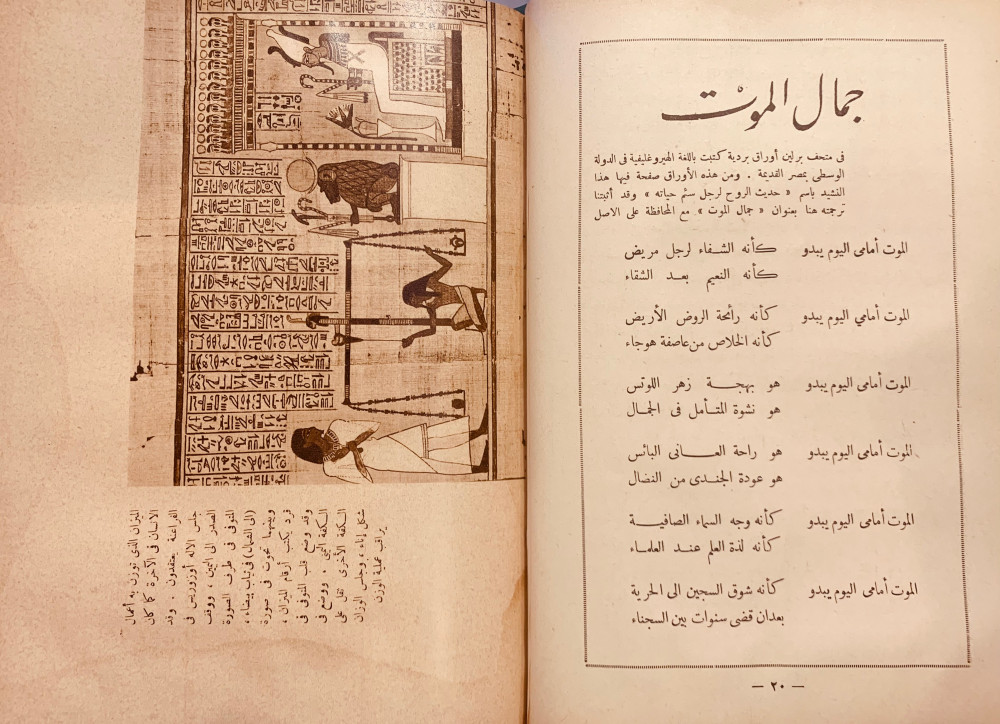 جمال الموت
فى متحف برلين أوراق بردية كتبت باللغة الهيروغليفية فى الدولة
الوسطى بمصر القديمة . ومن هذه الأوراق صفحة فيها هذا
النشيد باسم « حديث الروح لرجل سئم حياته » وقد أثبتنا
ترجمته هنا بعنوان « جمال الموت » مع المحافظة على الاصل
الموت أمامى اليوم يبدو كأنه الشفاء لرجل مريض
كأنه النعيم بعد الشقاء
الموت أمامي اليوم يبدو كأنه رائحة الروض الأريض
كأنه الخلاص من عاصفة هوجاء
الموت أمامى اليوم يبدو هو بهجة زهر اللوتس
هو نشوة المتأمل فى الجمال
الموت أمامى اليوم يبدو هو راحة العانى البائس
هو عودة الجندى من النضال
الموت أمامى اليوم يبدو كأنه وجه السماء الصافية
كأنه لذة العلم عند العلماء
الموت أمامى اليوم يبدو كأنه شوق السجين الى الحرية
بعد ان قضى سنوات بين السجناء
— ٢٠ —
الميزان الذى توزن به أعمال
الانسان فى الآخرة كما كان
الفراعنة يعتقدون . وقد
جلس الاله أوزوريس فى
الصدر الى اليمين ، ووقف
المتوفى فى طرف الصورة
(الى الشمال) فى ثياب بيضاء ،
وبينهما تحوت فى صورة
قرد يكتب أرقام الميزان ،
وقد وضع قلب المتوفى فى
الكفة اليمنى ، ووضع فى
الكفة الأخرى ثقل على
شكل إناء ، وجلس الوزان
يراقب عملية الوزن